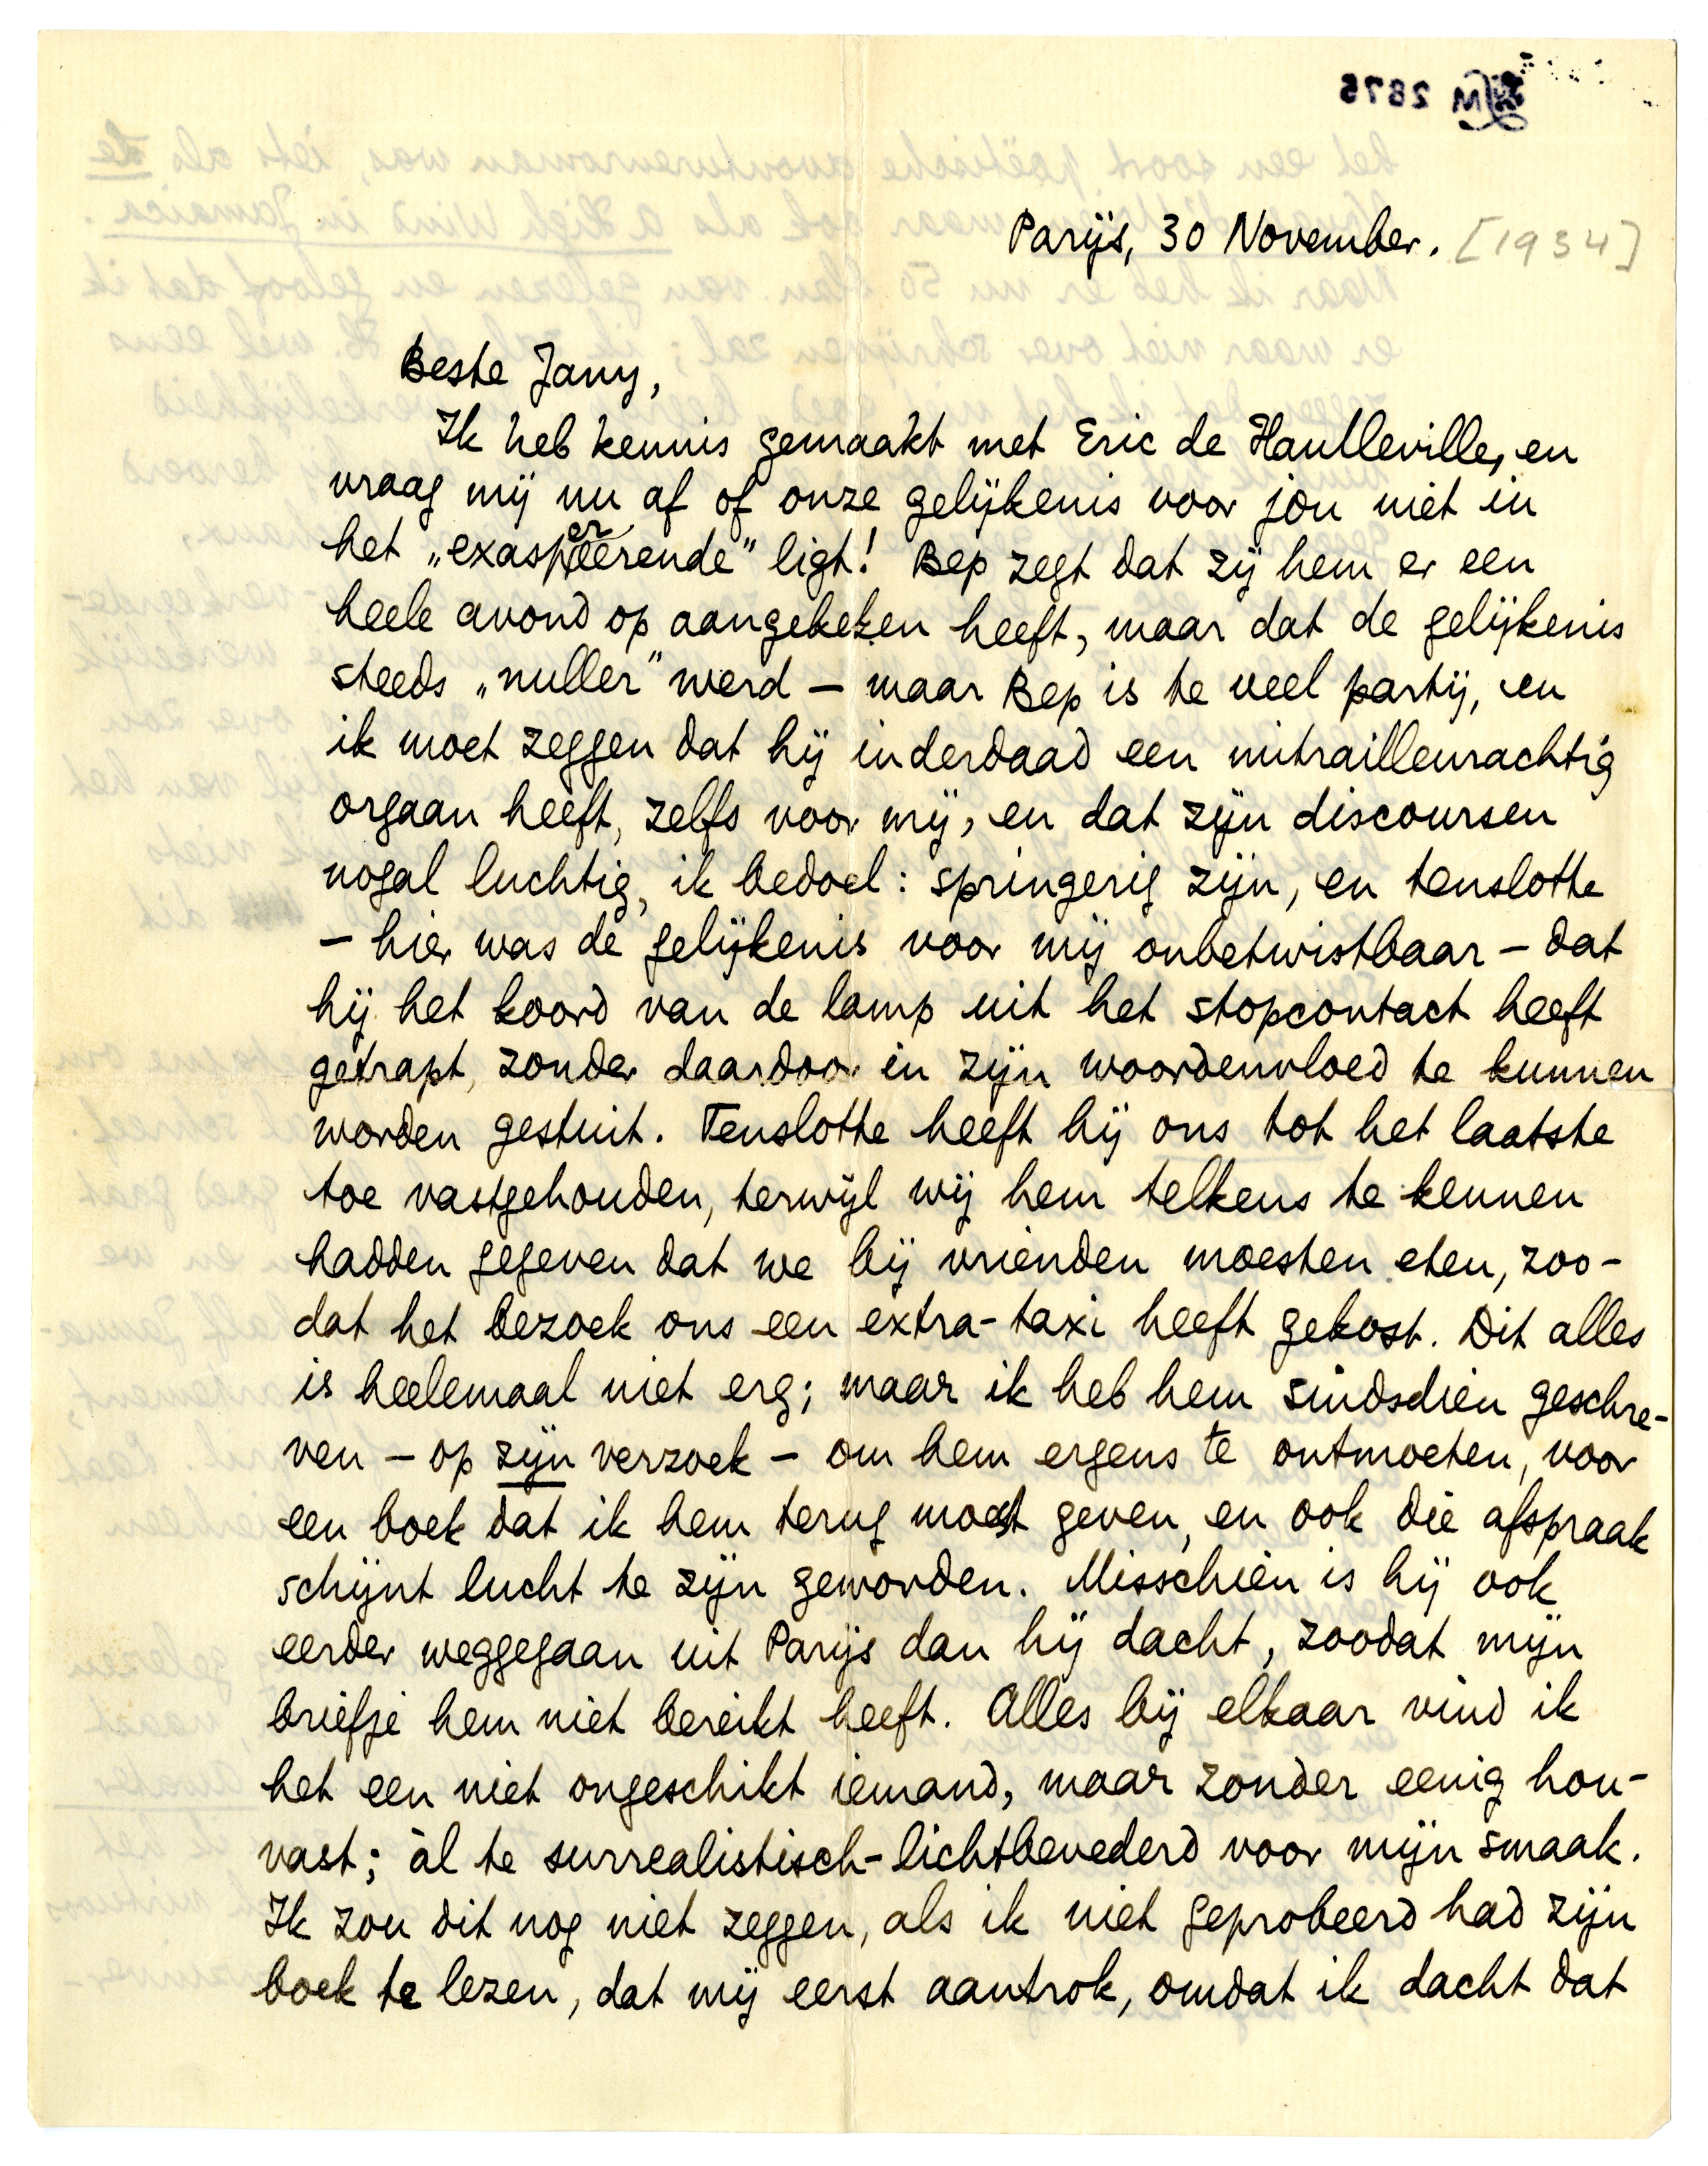 Parijs, 30 November. [1934]
Beste Jany,
Ik heb kennis gemaakt met Eric de Haulleville, en
vraag mij nu af of onze gelijkenis voor jou niet in
het „exaspereerende” ligt! Bep zegt dat zij hem er een
heele avond op aangekeken heeft, maar dat de gelijkenis
steeds „nuller” werd — maar Bep is te veel partij, en
ik moet zeggen dat hij inderdaad een mitrailleurachtig
orgaan heeft, zelfs voor mij, en dat zijn discoursen
nogal luchtig, ik bedoel: springerig zijn, en tenslotte
— hier was de gelijkenis voor mij onbetwistbaar — dat
hij het koord van de lamp uit het stopcontact heeft
getrapt, zonder daardoor in zijn woordenvloed te kunnen
worden gestuit. Tenslotte heeft hij ons tot het laatste
toe vastgehouden, terwijl wij hem telkens te kennen
hadden gegeven dat we bij vrienden moesten eten, zoo-
dat het bezoek ons een extra-taxi heeft gekost. Dit alles
is heelemaal niet erg; maar ik heb hem sindsdien geschre-
ven — op zijn verzoek — om hem ergens te ontmoeten, voor
een boek dat ik hem terug moest geven, en ook die afspraak
schijnt lucht te zijn geworden. Misschien is hij ook
eerder weggegaan uit Parijs dan hij dacht, zoodat mijn
briefje hem niet bereikt heeft. Alles bij elkaar vind ik
het een niet ongeschikt iemand, maar zonder eenig hou-
vast; àl te surrealistisch-lichtbevederd voor mijn smaak.
Ik zou dit nog niet zeggen, als ik niet geprobeerd had zijn
boek te lezen, dat mij eerst aantrok, omdat ik dacht dat